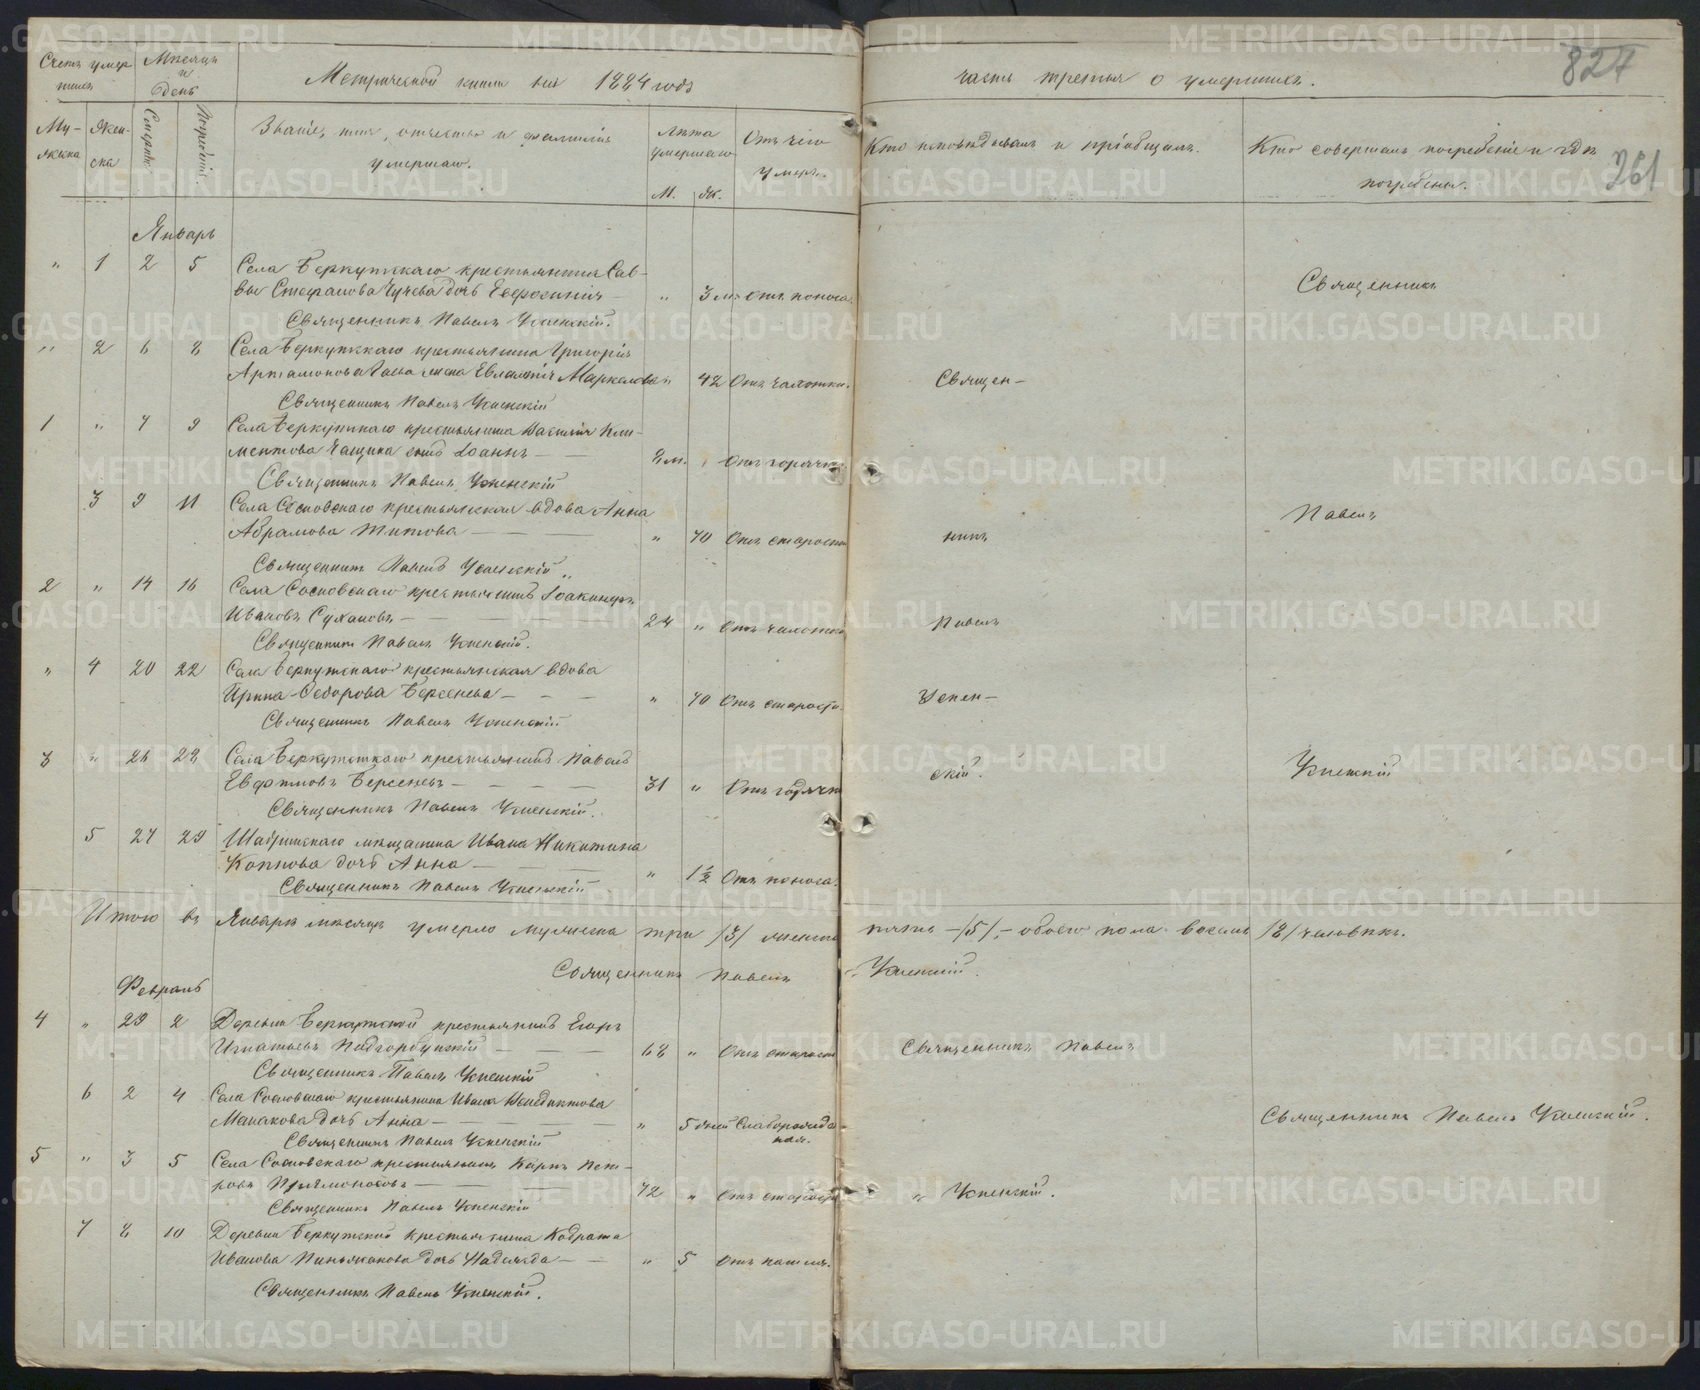 Счетъ умершихъ
Мѣсяцъ и день
Метрической книги на 1884 годъ
Му-жеска
Жен-ска
Смерти.
Погребенія.
Званіе, имя, отчество и фамилія умершаго.
Лѣта умершаго
М. Ж.
Отъ чего умеръ.
Январь
" 1 2 5 Села Беркутскаго крестьянина Сав-
вы Стефанова дочь Евфросинія — " 3 м. Отъ поноса.
Священникъ Павелъ Успенскій.
" 2 6 8 Села Беркутскаго крестьянина Григорія
Артамонова жена Евлампія Маркелова " 42 Отъ чахотки.
Священникъ Павелъ Успенскій
1 " 7 9 Села Беркутскаго крестьянина Василія Кли-
ментова сынъ Іоаннъ — — 8 м. " Отъ горячки
Священникъ Павелъ Успенскій
3 9 11 Села Сосновскаго крестьянская вдова Анна
Абрамова Титова — — — " 70 Отъ старости
Священникъ Павелъ Успенскій
2 " 14 16 Села Сосновскаго крестьянинъ
Ивановъ Сухановъ — — — 24 " Отъ чахотки
Священникъ Павелъ Успенскій.
" 4 20 22 Села Беркутскаго крестьянская вдова
Ирина Ѳедорова Берсенева — — — " 70 Отъ старости.
Священникъ Павелъ Успенскій
3 " 26 28 Села Беркутскаго крестьянинъ Павелъ
Берсеневъ — — — 31 " Отъ горячки
Священникъ Павелъ Успенскій.
5 27 29 мѣщанина Ивана Никитина
дочь Анна — — " 1½ Отъ поноса.
Священникъ Павелъ Успенскій
Итого въ Январѣ мѣсяцѣ умерло мужеска три /3/ женска
Священникъ Павелъ
Февраль
4 " 29 2 Деревни Беркутской крестьянинъ Егоръ
Игнатьевъ Подгорбунскій — — — 68 " Отъ старости
Священникъ Павелъ Успенскій
6 2 4 Села Сосновскаго крестьянина Ивана Венедиктова
дочь Анна — — — — " 5 дней Слаборожден-
ная.
Священникъ Павелъ Успенскій
5 " 3 5 Села Сосновскаго крестьянинъ Карпъ Пет-
ровъ — — 72 " Отъ старости
Священникъ Павелъ Успенскій
7 8 10 Деревни Беркутской крестьянина Кодрата
Иванова дочь Надежда — — " 5 Отъ кашля.
Священникъ Павелъ Успенскій.
827
часть третья о умершихъ.
Кто исповѣдывалъ и пріобщалъ.
Кто совершалъ погребеніе и гдѣ
погребены.
261
Священникъ
Священ-
Павелъ
никъ
Павелъ
Успен-
скій.
Успенскій
пять — /5/, — обоего пола восемь /8/ человѣкъ.
Успенскій.
Священникъ Павелъ
Священникъ Павелъ Успенскій.
" Успенскій.
METRIKI.GASO-URAL.RU